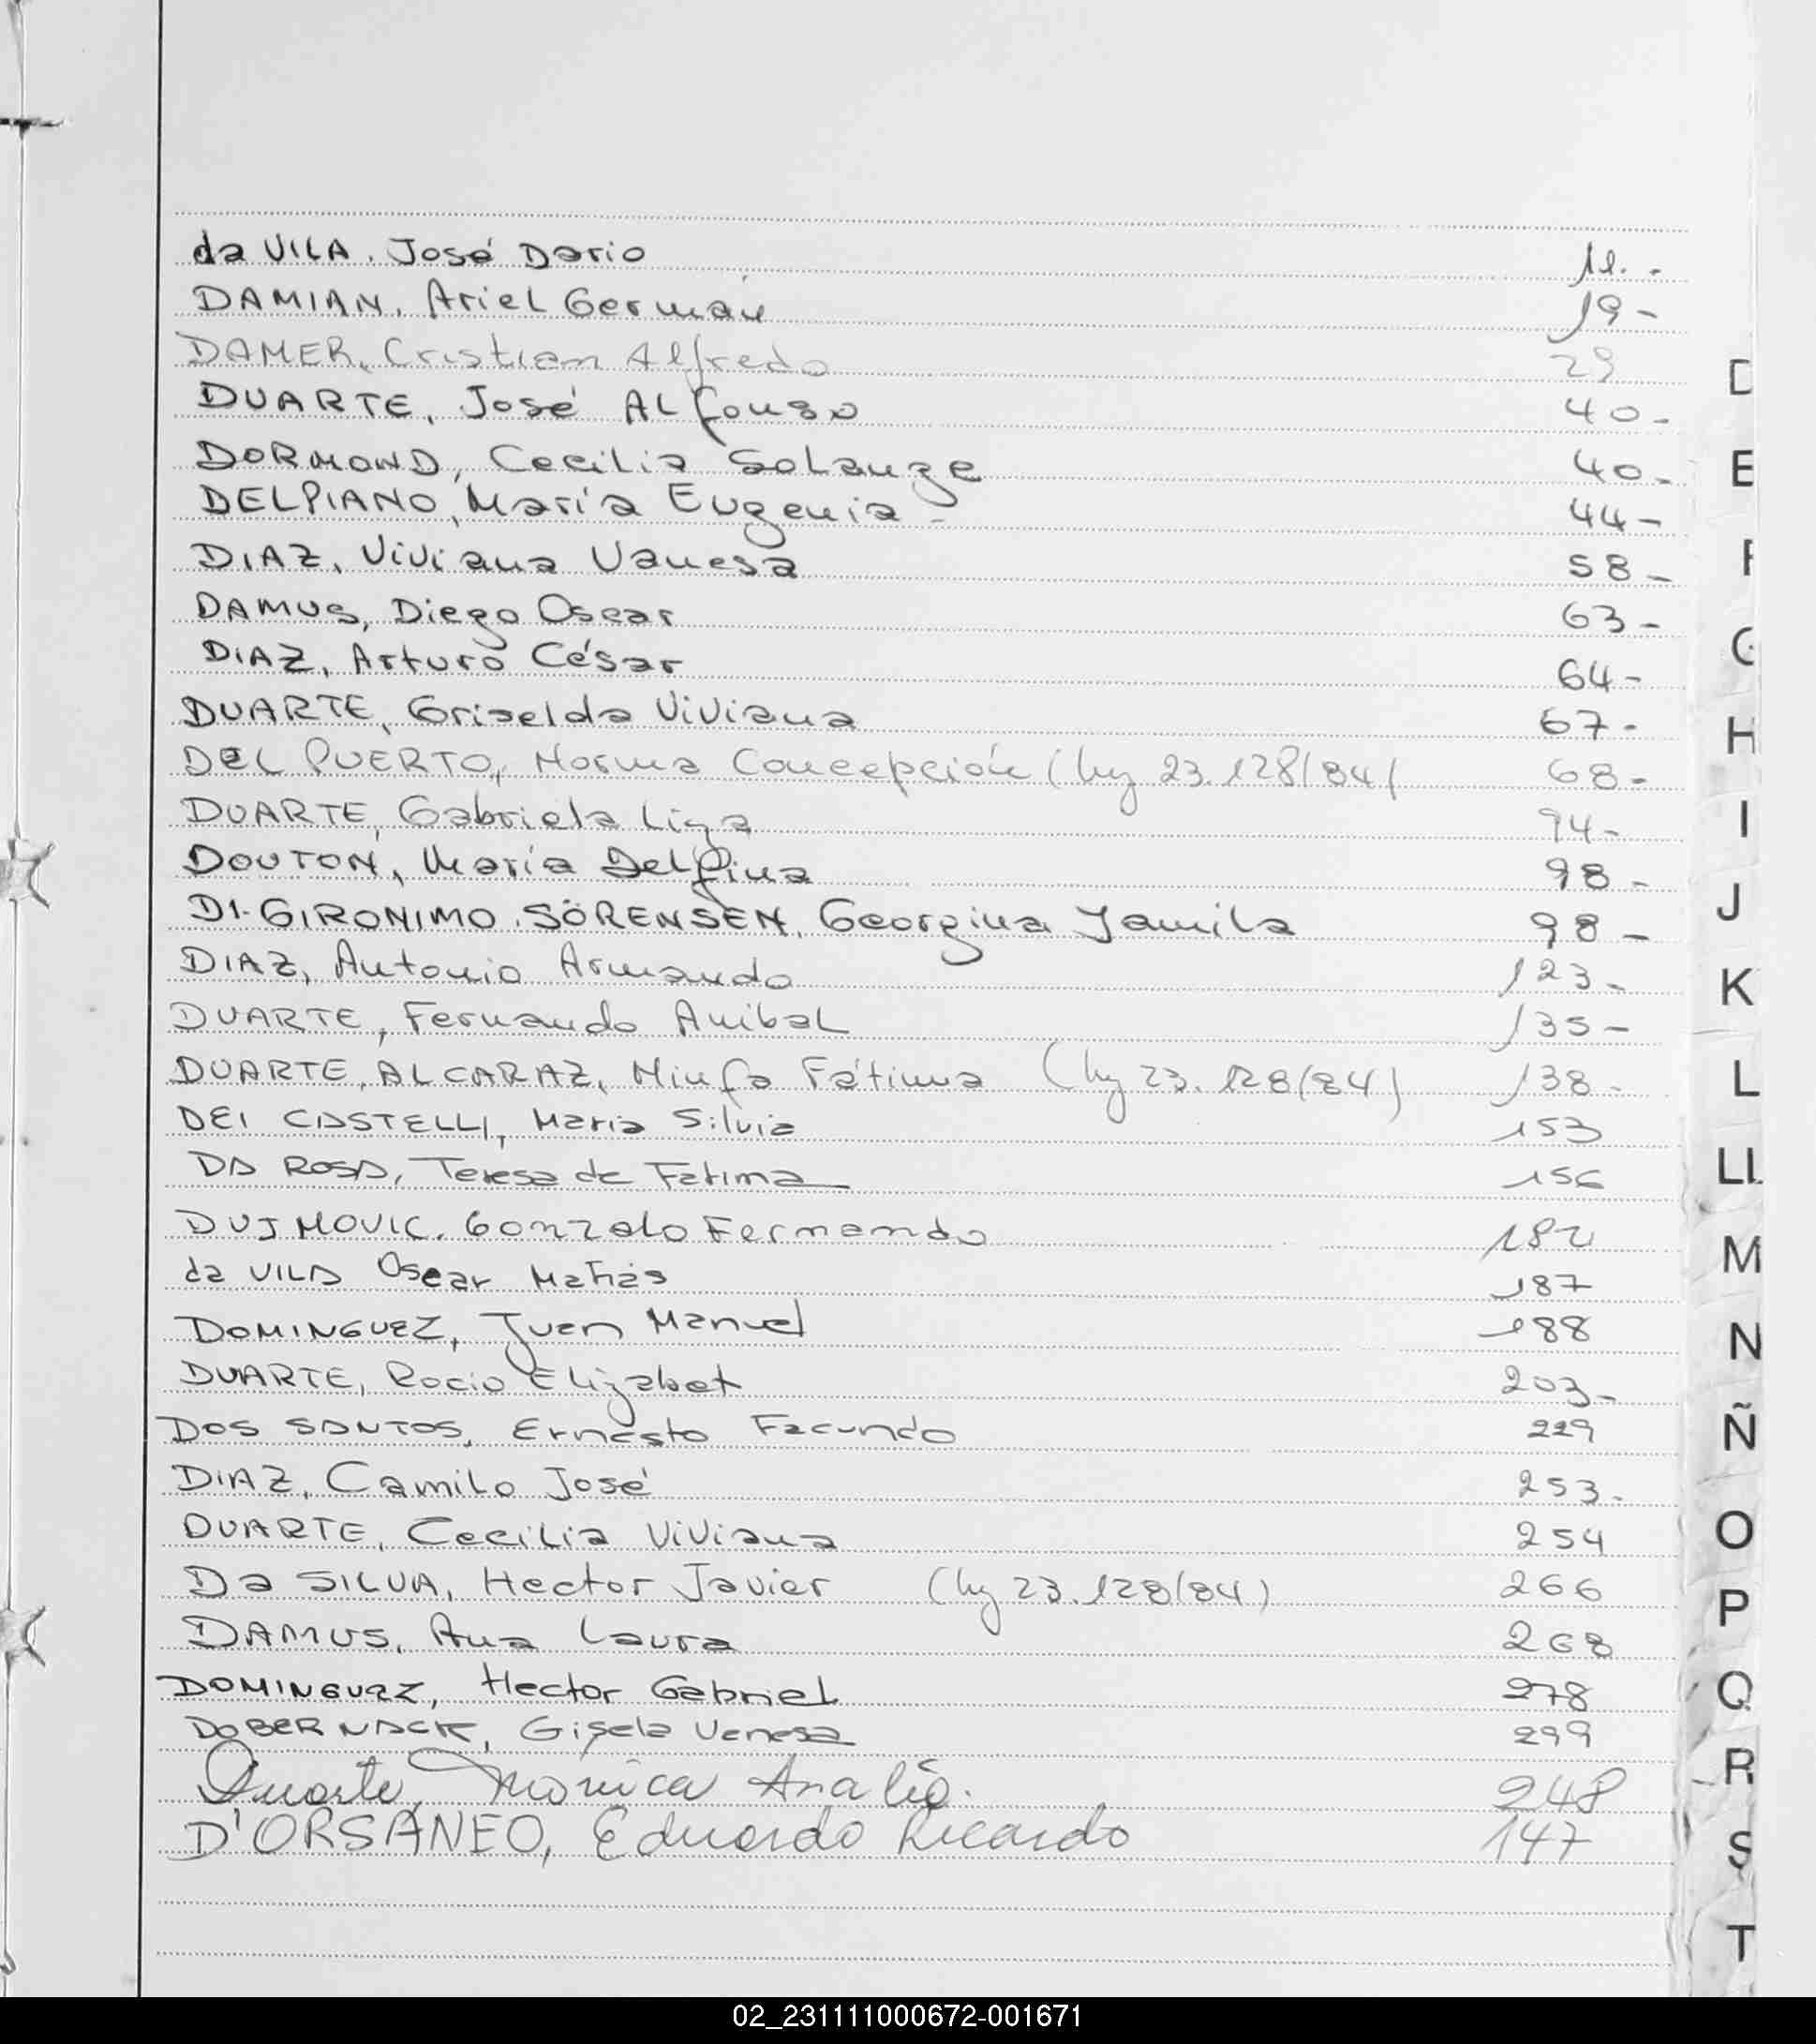 da VILA. José Dario 11.-
DAMIAN, Ariel Germán 19-
DAMER, Cristian Alfredo 29
DUARTE, José ALfonso 40-
DORMOND, Cecilia Solange 40-
DELPIANO, María Eugenia - 44-
DIAZ, Viviana Vanesa 58-
DAMUS, Diego Oscar 63-
DIAZ, Arturo César 64-
DUARTE, Griselda Viviana 67-
DEL PUERTO, Norma Concepción (ley 23.128/84) 68-
DUARTE, Gabriela Ligia 94-
DOUTON, María Delfina 98-
DI-GIRONIMO SÖRENSEN, Georgina Jamila 98-
DIAZ, Antonio Armando 123-
DUARTE, Fernando Anibal 135-
DUARTE, ALCARAZ, Ninfa Fátima (ley 23.128/84) 138-
DEI CASTELLI, Maria Silvia 153
DA ROSA, Teresa de Fatima 156
DUJMOVIC. Gonzalo Fernando 182
da VILA Oscar Matías 187
DOMINGUEZ, Juan Manuel 188
DUARTE, Rocio Elizabet 203-
DOS SANTOS, Ernesto Facundo 229
DIAZ, Camilo José 253-
DUARTE, Cecilia Viviana 254
Da SILVA, Hector Javier (ley 23.128/84) 266
DAMUS, Ana Laura 268
DOMINGUEZ, Hector Gabriel 278
DOBERNACK, Gisela Vanesa 299
Duarte, Mónica Analía. 248
D'ORSANEO, Eduardo Ricardo 147
D
E
F
G
H
I
J
K
L
LL
M
N
Ñ
O
P
Q
R
S
T
02_231111000672-001671